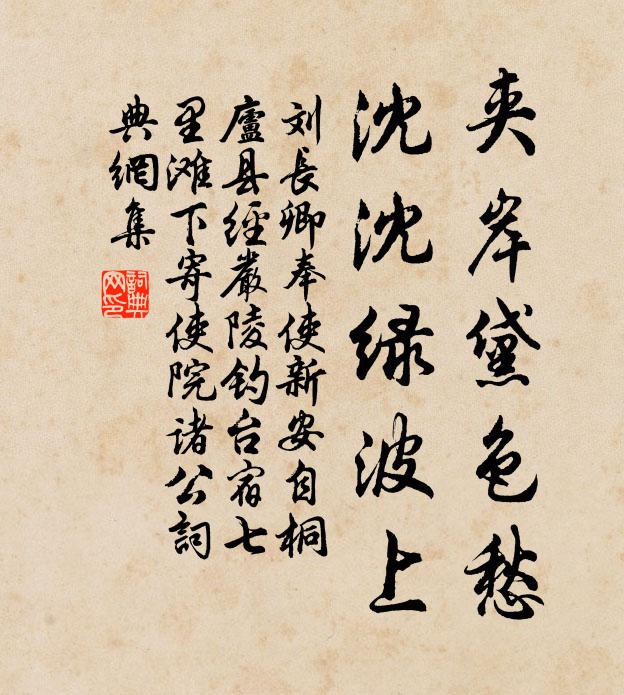 夹岸黛色愁
沈沈绿波上
刘長卿奉使新安自桐
廬县經嚴陵钓台宿七
里滩下寄使院诸公詞
典網集
詞典网印